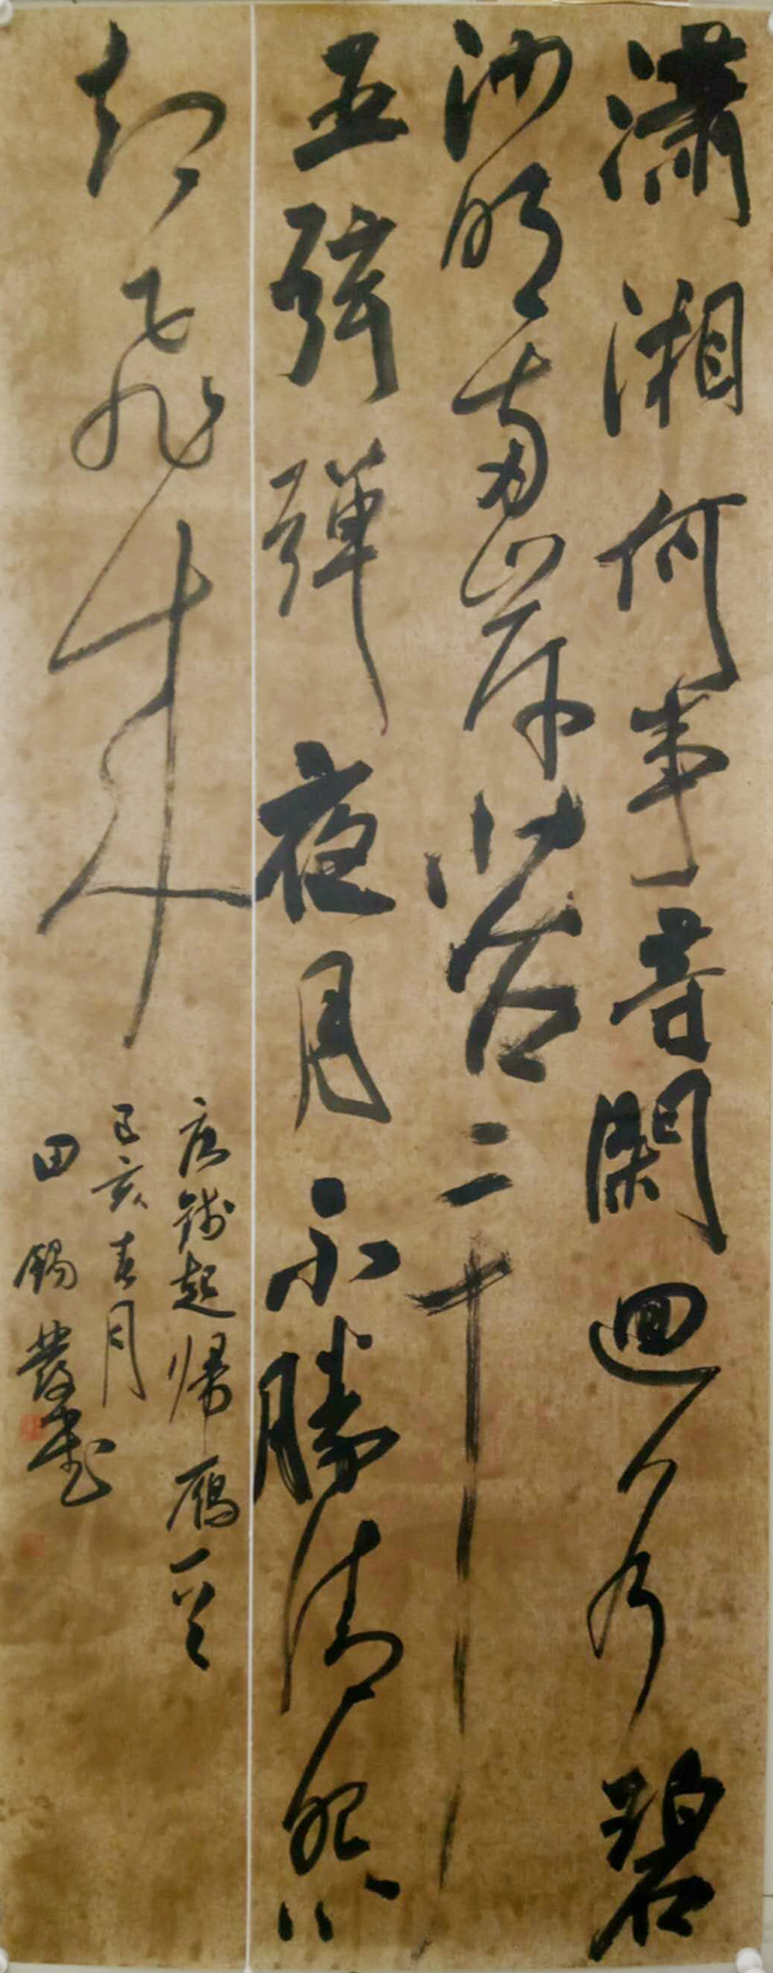 瀟湘何事等閑迴水碧
沙明兩岸苔二十
五弦彈夜月不勝清怨
却飛来
唐錢起帰雁一首
己亥春月
田錫發書